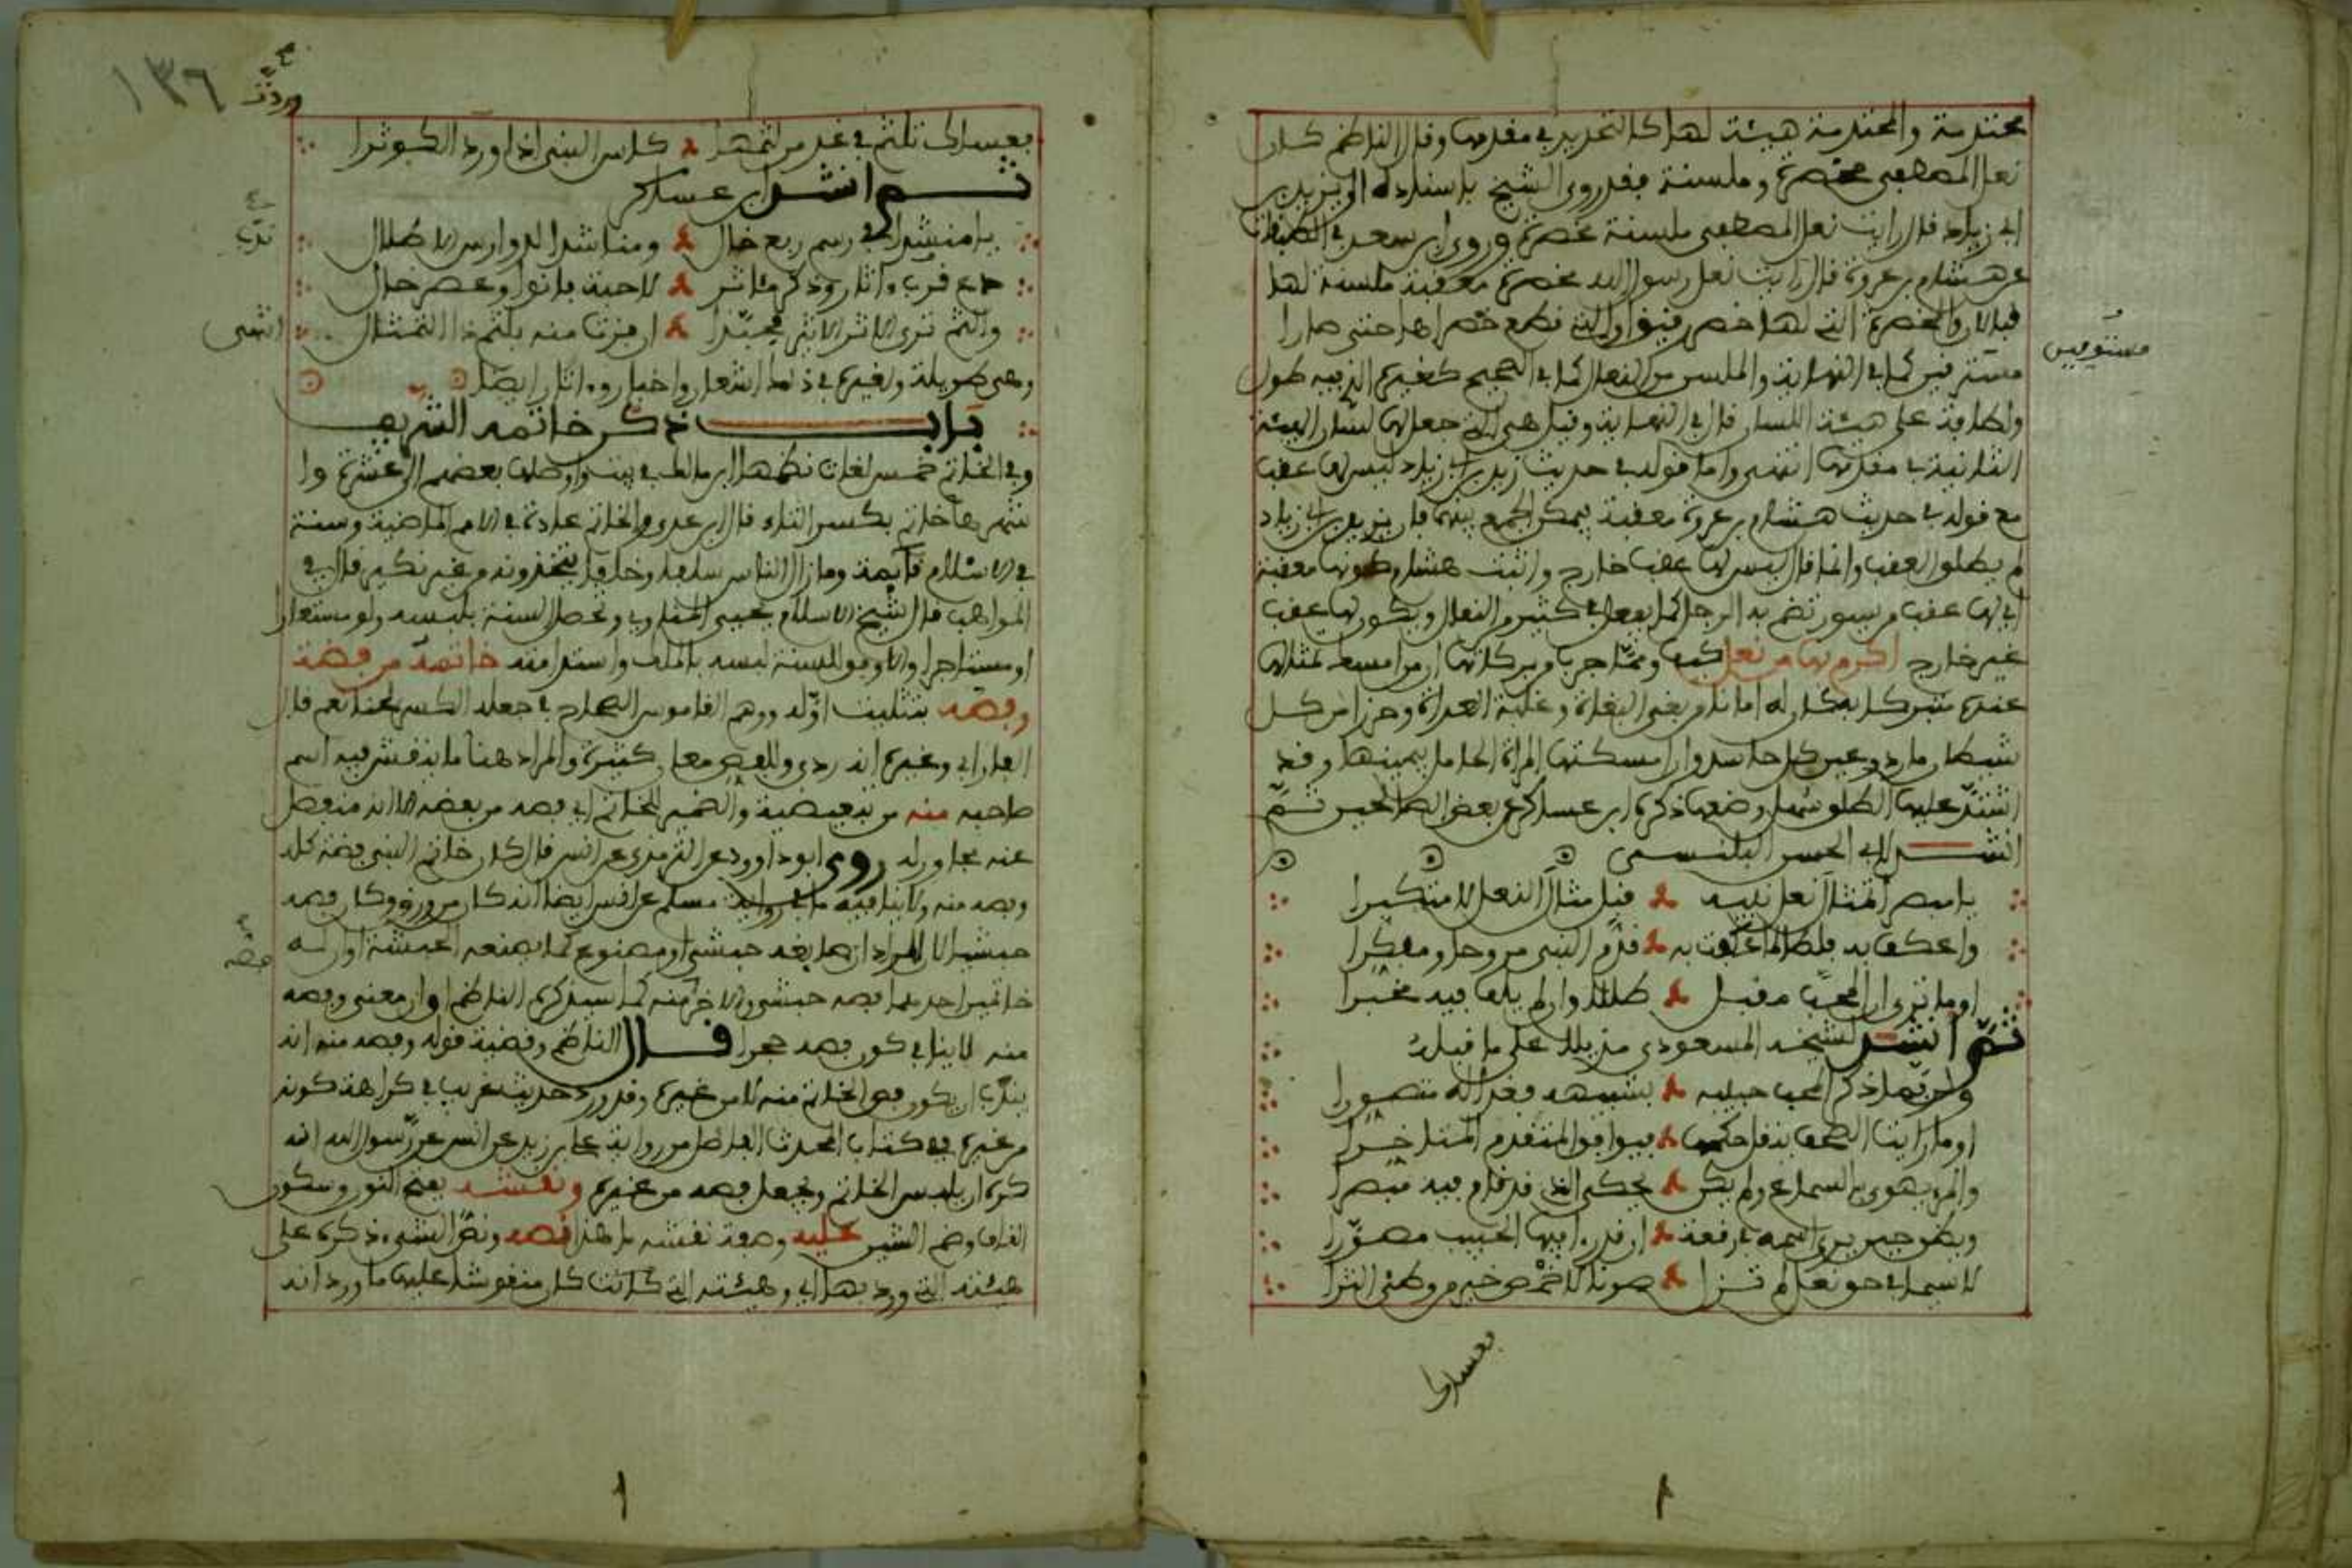 مختدمة والمختدمة هيئة لها كالتحديد في مقدمها وقال الناظم كان
نعل المصطفى مخصرة وملسنة فقد روى الشيخ باسناده الى يزيد بن
ابي زياد قال رايت نعل المصطفى ملسنة مخصرة وروى ابن سعد في الطبقات
عن هشام بن عروة قال رايت نعل رسول الله مخصرة معقبة ملسنة لها
قبالان والمخصرة التي لها خصر رقيق او التي قطع خصراها حتى صارا
مستدقين كما في النهاية والملسن من النعال كما في الصحيح كغيره الذي فيه طول
ولطافة على هيئة اللسان قال في النهاية وقيل هي التي جعل لها لسان الهيئة
الناتية في مقدمها انتهى واما قوله في حديث يزيد بن ابي زياد ليس لها عقب
مع قوله في حديث هشام بن عروة معقبة فيمكن الجمع بينهما فان يزيد بن ابي زياد
لم يطلق العقب وانما قال ليس لها عقب خارج واثبت هشام كونها معقبة
اي لها عقب من سيور تضم به الرجل كما يفعل في كثير من النعال ويكون لها عقب
غير خارج اكرم بها من نعل ومما جرب من بركاتها ان من امسك مثالها
عنده متبركا به كان له امانا من بغي البغاة وغلبة العداة وحرزا من كل
شيطان مارد وعين كل حاسد وان امسكتها المراة الحامل بيمينها وقد
اشتد عليها الطلق سهل وضعها ذكره ابن عساكر عن بعض الصالحين ثم
انشد لابي الحسن البلنسي
يا مبصرا تمثال نعل نبيه قبل مثال النعل لا متكبرا
واعكف به فلطالما عكفت به قدم النبي مروحا ومبكرا
اوما ترى ان المحب مقبل طللا وان لم يلف فيه مخبرا
ثم انشد لشيخه المسعودي مذيلا على ما قبله
ولربما ذكر المحب حبيبه بشبيهه فغدا له متصورا
اوما راينا الصحف ينقل حكمها فيوافق المتقدم المتاخرا
والمرء يهوى بالسماع ولم يكن يحكي الذي قد قام فيه مبصرا
ويظل حين يرى اسمه في رقعة ان قد راى فيها الحبيب مصورا
لا سيما في حق نعل لم تزل صونا لاخمص خير من وطئ الثرا
فعساك
مستوفيين
١٣٦
فعساك تلثم في غد من لثمها كاس النبي اذا ورد الكوثرا
ثم انشد ابن عساكر
يا منشدا في رسم ربع خال ومناشدا لدوارس الاطلال
دع ندب واثار وذكر مئاثر لاحبة بانوا وعصر خال
والثم ثرى الاثر الاثير فحبذا ان فزت منه بلثم ذا التمثال
وهي طويلة ولغيره في ذلك اشعار واخبار وءاثار ايضا
باب ذكر خاتمه الشريف
وفي الخاتم خمس لغات نظمها ابن مالك في بيت واوصلها بعضهم الى عشرة وا
شهرها خاتم بكسر التاء قال ابن عدي والخاتم عادة في الامم الماضية وسنة
في الاسلام قائمة وما زال الناس سلفا وخلفا يتخذونه من غير نكير قال في
المواهب قال شيخ الاسلام يحيى المناوي وتحصل السنة بلبسه ولو مستعارا
او مستاجرا والاوفق للسنة لبسه بالملك واستدامته خاتمه من فضة
وفصه بتثليث اوله ووهم القاموس الصحاح في جعله الكسر لحنا نعم قال
الفارابي وغيره انه ردي وللفص معان كثيرة والمراد هنا ما ينقش فيه اسم
صاحبه منه من تبعيضية والضمير للخاتم اي فصه من بعضه لا انه منفصل
عنه مجاور له روى ابو داوود عن الترمذي عن انس قال كان خاتم النبي فضة كله
وفصه منه ولا ينافيه ما رواية مسلم عن انس ايضا انه كان من ورق وكان فصه
حبشيا لان المراد ان صايغه حبشي او مصنوع كما يصنعه الحبشة او ان له
خاتمين احدهما فصه حبشي والاخر منه كما سيذكره الناظم او ان معنى وفصه
منه لا ينافي كون فصه حجرا قال الناظم وقضية قوله وفصه منه انه
يندب ان يكون فص الخاتم منه لا من غيره وقد ورد حديث غريب في كراهة كونه
من غيره ففي كتاب المحدث الفاضل من رواية علي بن زيد عن انس عن رسول الله انه
كره ان يلبس الخاتم ويجعل فصه من غيره ونقشه بفتح النون وسكون
القاف وضم الشين عليه وصفة نقشه ما هذا فصه ونص الشيء ذكره على
هيئته التي ورد بها اي وهيئته التي كانت كان منقوشا عليها ما ورد انه
ندب
انتهى
فضة